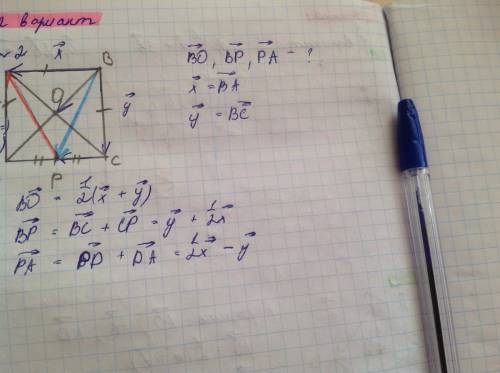 вариант
2 x⃗ B
O
y⃗
P C
B͞O⃗, B͞P⃗, P͞A⃗ - ?
x⃗ = BA⃗
y⃗ = BC⃗
BO⃗ = 1/2(x⃗ + y⃗)
BP⃗ = BC⃗ + CP⃗ = y⃗ + 1/2x⃗
PA⃗ = PD⃗ + DA⃗ = 1/2x⃗ - y⃗